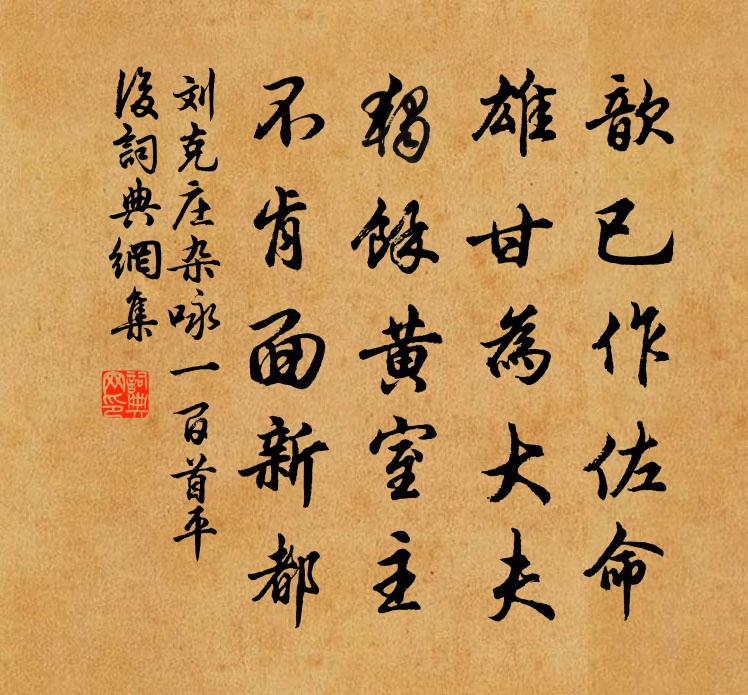 歆已作佐命
雄甘為大夫
獨餘黃室主
不肯面新都
刘克庄杂咏一百首平
後詞典網集
詞典
网印